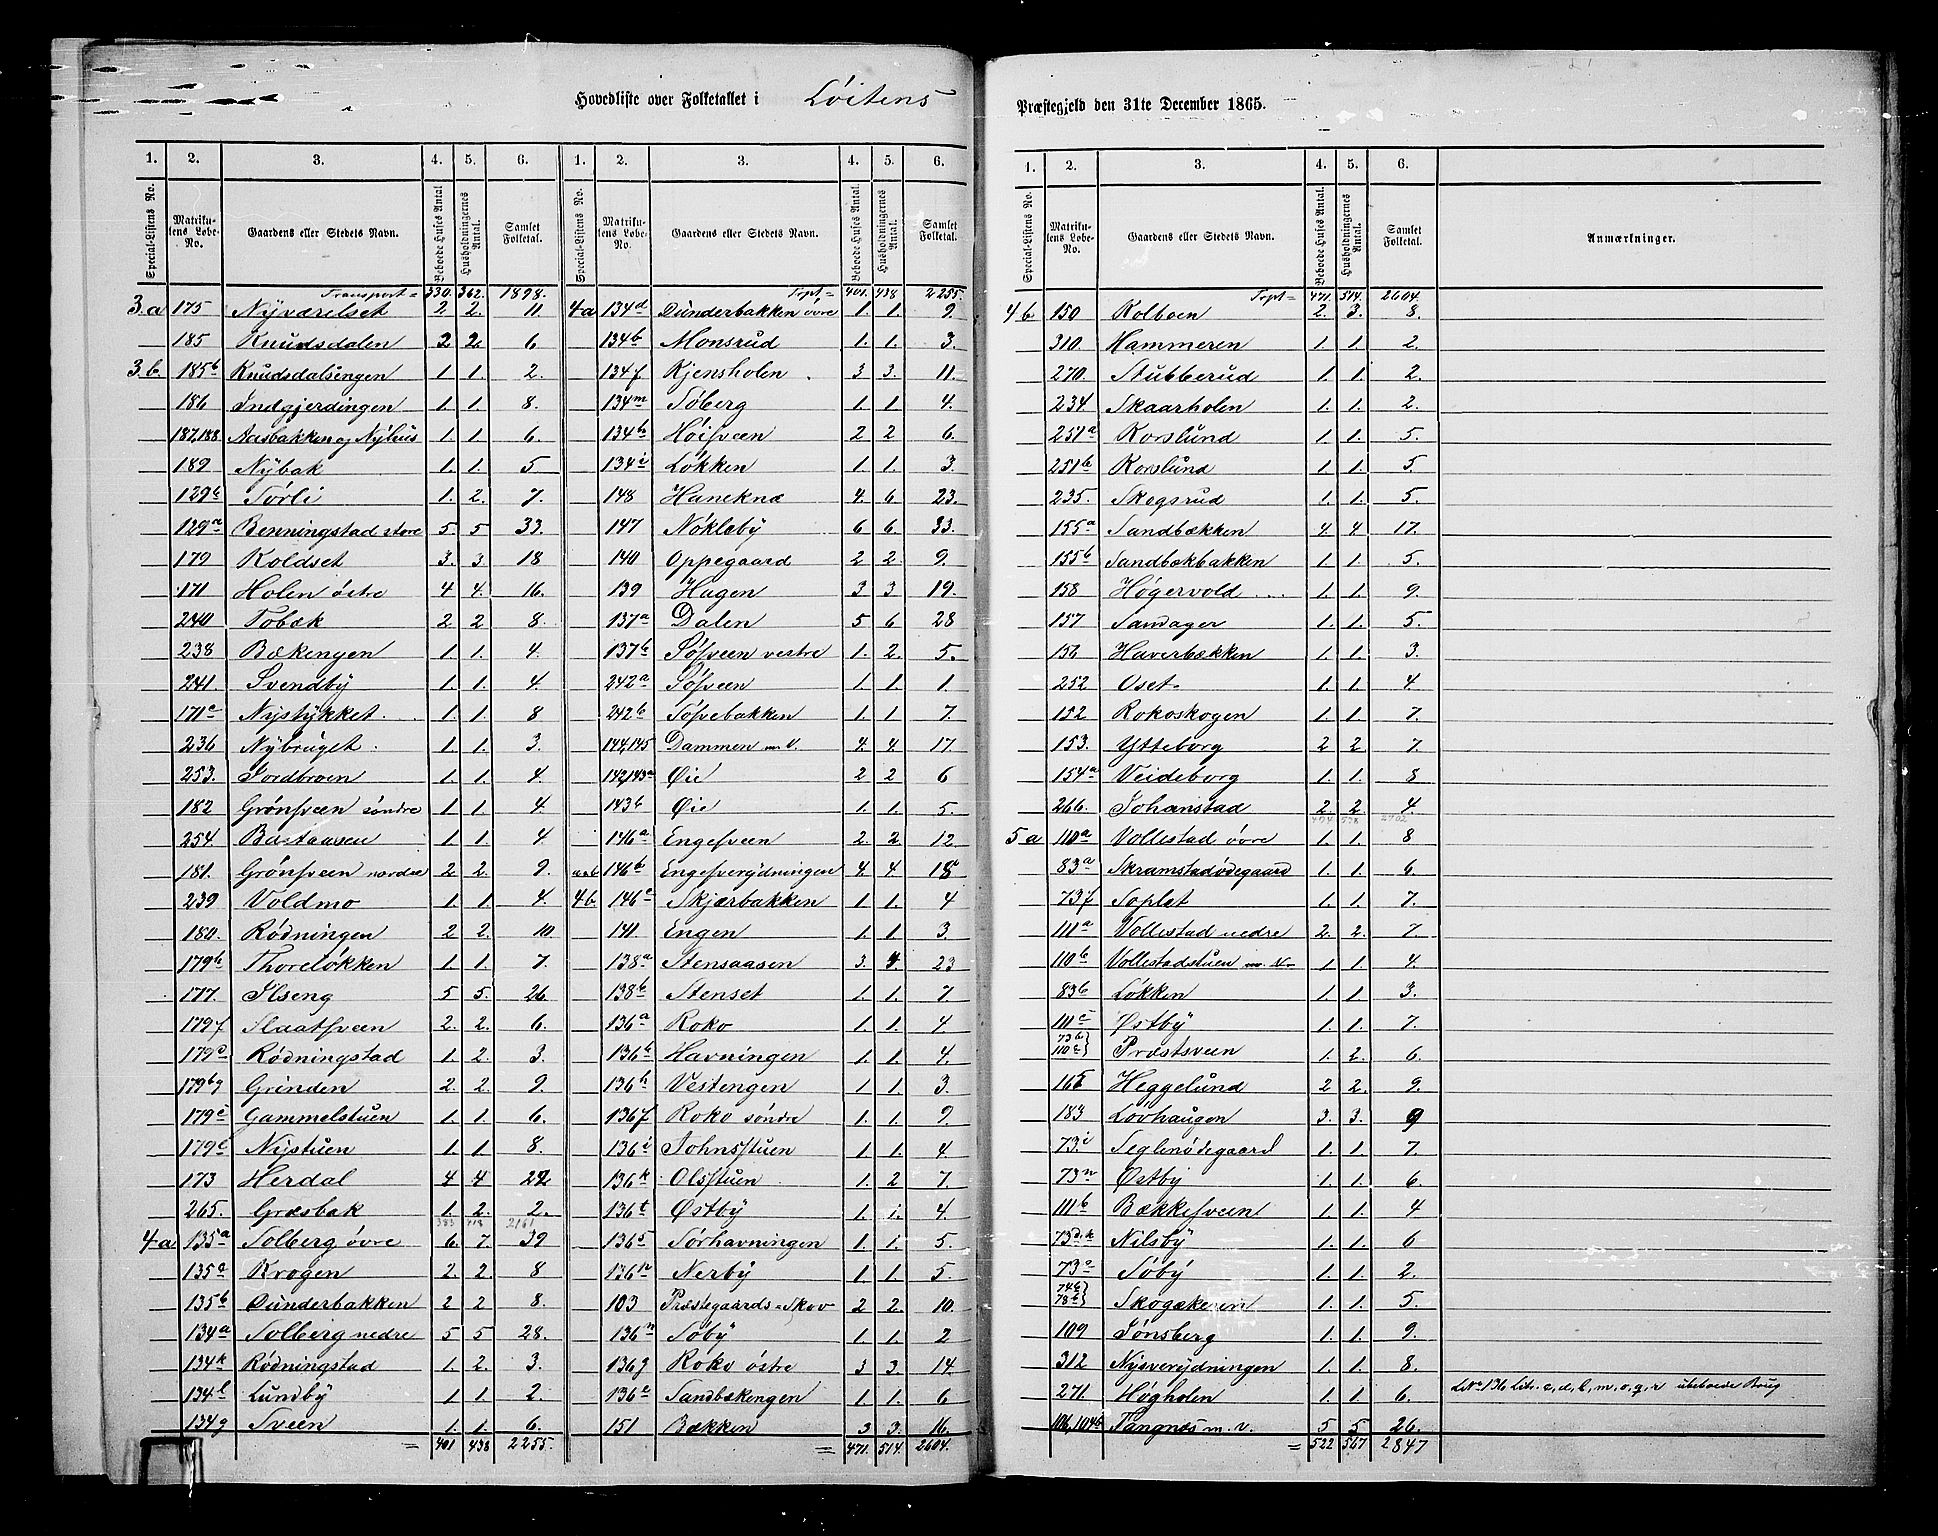 Hovedliste over Folketallet i Løitens Præstegjeld den 31te December 1865.
1. 2. 3. 4. 5. 6. 1. 2. 3. 4. 5. 6.
Special-Listens No. Matrikulens Løbe-No. Gaardens eller Stedets Navn. Beboede Huses Antal Husholdningernes Antal. Samlet Folketal. Special-Listens No. Matrikulens Løbe-No. Gaardens eller Stedets Navn. Beboede Huses Antal. Husholdningernes Antal. Samlet Folketal.
Transport = 330. 362. 1898.
3.a 175 Nyværelset 2 2. 11
185 Knudsdalen 2 2. 6
3.b. 185b Knudsdalsengen 1. 1. 2.
186 Indgjerdingen 1. 1. 8.
187,188 Aasbakken og Nyhus 1. 1. 6.
189 Nybak 1. 1. 5
129b Sørli 1. 2. 7.
129a Benningstad store 5. 5 33.
179 Koldset 3. 3 18
171 Holen østre 4 4. 16.
240 Tobæk 2 2 8.
238 Bækengen 1. 1. 4.
241. Svendby 1. 1. 4.
171a Nystykket 1. 1. 8
236 Nybruget 1. 1. 3.
253. Jordbroen 1. 1. 4.
182 Grønsveen søndre 1. 1. 4.
254 Bastaasen 1. 1. 4
181. Grønsveen nordre 2 2. 9.
239 Voldmo 1. 1. 4.
180. Rødningen 2 2. 10
179b Thoreløkken 1. 1. 7.
177. Ilseng 5 5. 26
179f Slaatsveen 2. 2. 6.
179d Rødningstad 1. 2. 3.
179bg Grinden 2. 2. 9.
179c Gammelstuen 1. 1. 6.
179e Nystuen 1. 1. 8.
173 Herdal 4 4 22
265. Græsbak 1. 2. 2.
383 418 2161
4a 135a Solberg øvre 6. 7. 39
135a Krogen 2. 2. 8
135b Dunderbakken 2 2 8.
134a Solberg nedre 5 5 28.
134k Rødningstad 1. 2. 3.
134l Lundby 1. 1. 2.
134g Sveen 1. 1. 6.
= 401 438 2255.
Trpt = 401. 438 2255.
4a 134d Dunderbakken øvre 1. 1. 9.
134b Monsrud 1. 1. 3.
134f Kjensholen 3 3. 11.
134m Søberg 1. 1. 4.
134h Høisveen 2 2 6.
134i Løkken 1. 1. 3.
148 Haneknæ 4. 6 23.
147 Nøkleby 6 6. 33.
140 Oppegaard 2 2. 9.
139 Hagen 3 3 19.
137a Dalen 5 6 28
137b Søsveen vestre 1. 2. 5.
242a Søsveen 1. 1. 1.
242b Søsvebakken 1. 1 7.
144,145 Dammen m.V. 4. 4. 17
142,143a Øie 2 2 6
143b Øie 1. 1. 5.
146a Engesveen 2. 2. 12
a&b 146b Engesverydningen 4. 4 18
4b. 146c Skjærbakken 1. 1. 4
141. Engen 1. 1 3.
138a Stensaasen 3. 4. 23
138b Stenset 1. 1. 7
136a Roko 1. 1. 4.
136b Havningen 1. 1. 4.
136h Vestengen 1 1 3.
136f Roko søndre 1. 1. 9.
136i Johnsstuen 1. 1. 4
136k Olsstuen 1. 2 7.
136t Østby 1. 1. 4.
136s Sørhavningen 1. 1. 5.
136p Nerby 1 1. 5.
103 Præstegaards-Skov 2 2. 10
136n Søby 1. 1. 2
136g Roko østre 3 3. 14
136a Sandbækengen 1. 1. 6
151 Bækken 3 3. 16
= 471. 514. 2604.
1. 2. 3. 4. 5. 6.
Special-Listens No. Matrikulens Løbe-No. Gaardens eller Stedets Navn. Beboede Huses Antal. Husholdningernes Antal. Samlet Folketal. Anmærkninger.
Trpt = 471. 514. 2604.
4b 150 Kolboen 2. 3. 8.
310. Hammeren 1. 1. 2.
270. Stubberud 1. 1. 2.
234 Skaarholen 1. 1. 2.
251a Korslund 1. 1. 5.
251b Korslund 1. 1. 5.
235. Skogsrud 1. 1. 5.
155a Sandbækken 4. 4 17.
155b Sandbækbakken 1. 1. 5.
158 Høgervold 1. 1. 9
157 Sandager 1. 1. 5.
156 Haverbækken 1. 1. 3
252 Oset 1. 1. 4
152 Rokoskogen 1. 1. 7.
153. Ytteborg 2 2 7.
154a Veideborg 1. 1. 8
266. Johanstad 2 2. 4.
494 538 2702
5a 110a Vollestad øvre 1. 1. 8
83a Skramstadødegaard 1. 1. 6.
73f Soplet 1. 1. 7.
111a Vollestad nedre 2. 2. 7
110b Vollestadstuen m.V. 1 1. 4.
83b Løkken 1. 1. 3.
111c Østby 1. 1. 7.
73b 110c} Præstsveen 1. 2. 6.
165 Heggelund 2 2. 9.
183 Løvhaugen 3. 3. 9
73i Seglenødegaard 1. 1. 7.
73n Østby 1. 1. 6.
111b Bækkesveen 1. 1. 4
73d,k Nilsby 1. 1. 6
73o Søby 1. 1. 2.
74b 78b} Skogækeren 1. 1. 5.
109 Tønsberg 1. 1. 9.
312 Nysverydningen 1. 1. 8.
271 Høgholen 1. 1. 6. LNo 136 Litr. c, d, l, m, o, q, r ubeboede Brug
106,104b Tangnæs m.v. 5 5 26.
= 522 567 2847